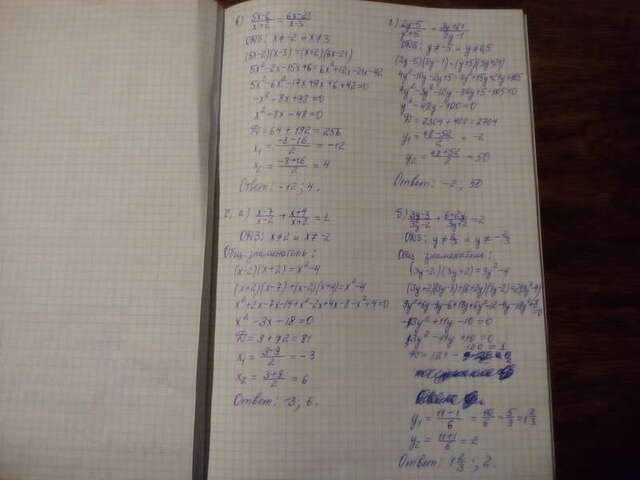 в) (5x-2)/(x+2) = (6x-21)/(x-3)
ОДЗ: x≠-2 и x≠3
(5x-2)(x-3)=(x+2)(6x-21)
5x²-2x-15x+6=6x²+12x-21x-42
5x²-6x²-17x+9x+6+42=0
-x²-8x+48=0
x²+8x-48=0
D=64+192=256
x₁=(-8-16)/2=-12
x₂=(-8+16)/2=4
Ответ: -12; 4.
2. а) (x-7)/(x-2) + (x+4)/(x+2) = 1
ОДЗ: x≠2 и x≠-2
Общ. знаменатель:
(x-2)(x+2)=x²-4
(x+2)(x-7)+(x-2)(x+4)=x²-4
x²+2x-7x-14+x²-2x+4x-8-x²+4=0
x²-3x-18=0
D=9+72=81
x₁=(3-9)/2=-3
x₂=(3+9)/2=6
Ответ: -3; 6.
г) (2y-5)/(y+5) = (3y+21)/(2y-1)
ОДЗ: y≠-5 и y≠0,5
(2y-5)(2y-1)=(y+5)(3y+21)
4y²-10y-2y+5=3y²+15y+21y+105
y²-48y-100=0
D=2304+400=2704
y₁=(48-52)/2=-2
y₂=(48+52)/2=50
Ответ: -2; 50
б) (3y-3)/(3y-2) + (6+2y)/(3y+2) = 2
ОДЗ: y≠2/3 и y≠-2/3
Общ. знаменатель:
(3y-2)(3y+2)=9y²-4
-3y²+11y-10=0
3y²-11y+10=0
D=121-120=1
y₁=(11-1)/6=10/6=5/3=1 2/3
y₂=(11+1)/6=2
Ответ: 1 2/3; 2.